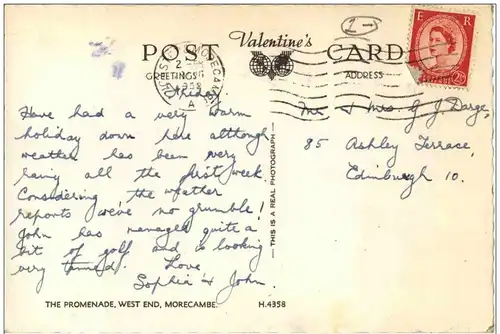 1-
POST Valentine's CARD
GREETINGS ADDRESS
E R
2½D
MORECAMBE
Friday.
Have had a very warm
holiday down here although
weather has been very
rainy all the first week.
Considering the weather
reports we've no grumble!
John has managed quite a
bit of golf and is looking
very tanned. Love
Sophia & John.
Mr & Mrs. G. J. Darge,
85 Ashley Terrace,
Edinburgh 10.
THIS IS A REAL PHOTOGRAPH
THE PROMENADE, WEST END, MORECAMBE. H.4358